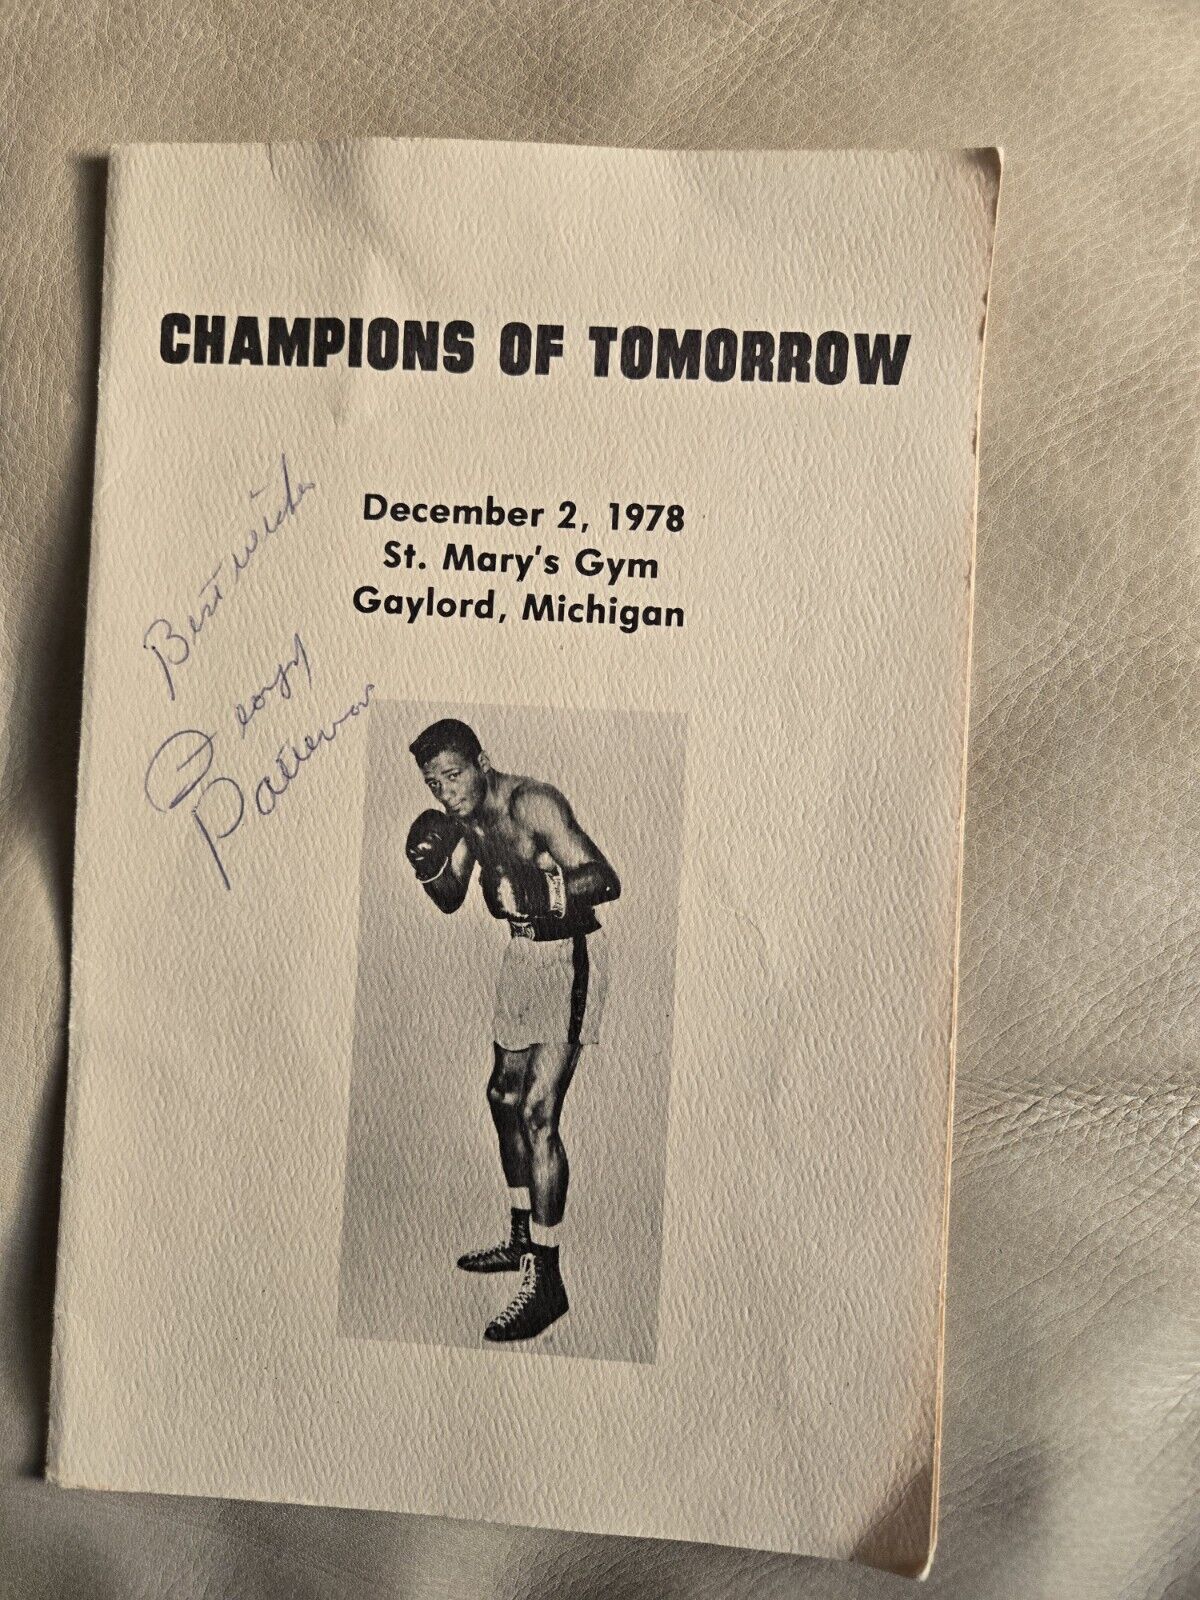 CHAMPIONS OF TOMORROW
December 2, 1978
St. Mary's Gym
Gaylord, Michigan
Best wishes